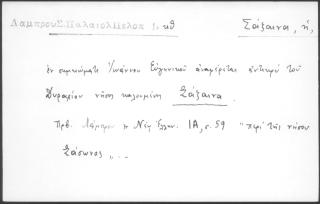 Λάμπρου Σ. Παλαιολ. Πελοπ 1. κθ
Σάξαινα, ἡ,
ἐν σημειώματι Ἰωάννου Εὐγενικοῦ ἀναφέρεται ἀντικρὺ τοῦ
Δυραχίου νῆσος καλουμένη Σάξαινα.
Πρβ. Λάμπρ. Ν. Ἑλλην. ΙΑ, σ. 59 "περὶ τῆς νήσου
Σάσωνος" ...